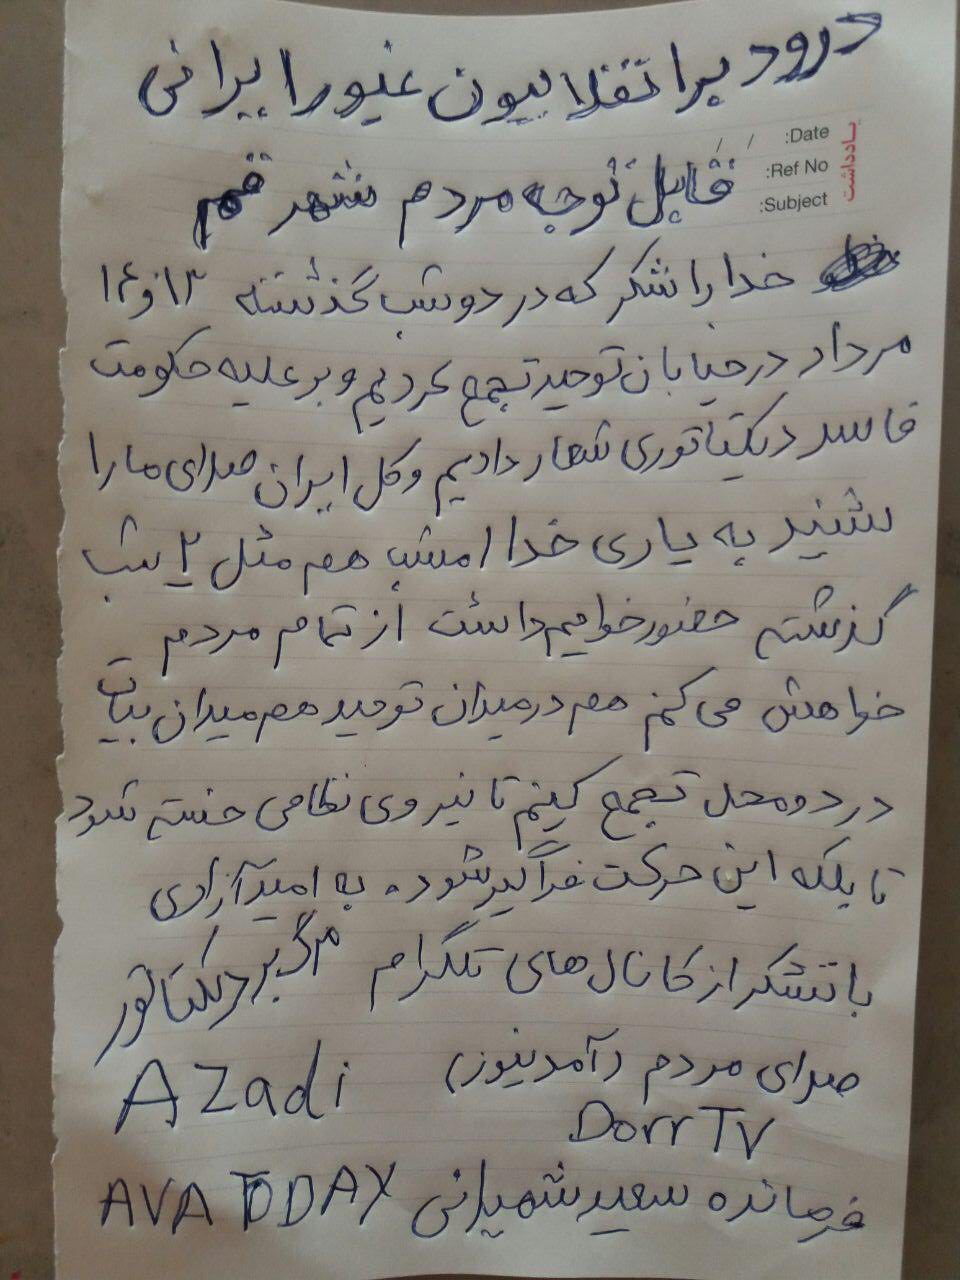 درود بر انقلابیون غیور ایرانی
یادداشت
Date: / /
Ref No:
Subject:
قابل توجه مردم شهر قم
خدا را شکر که در دو شب گذشته ۱۳ و ۱۴
مرداد در خیابان توحید تجمع کردیم و بر علیه حکومت
فاسد دیکتاتوری شعار دادیم و کل ایران صدای ما را
شنید به یاری خدا امشب هم مثل ۲ شب
گذشته حضور خواهیم داشت از تمام مردم
خواهش می کنم هم در میدان توحید هم میدان
در دو محل تجمع کنیم تا نیروی نظامی خسته شود
تا بلکه این حرکت فراگیر شود. به امید آزادی
با تشکر از کانال های تلگرام مرگ بر دیکتاتور
صدای مردم (آمدنیوز) Azadi
Dorr TV
فرمانده سعید شمیرانی AVA TODAY